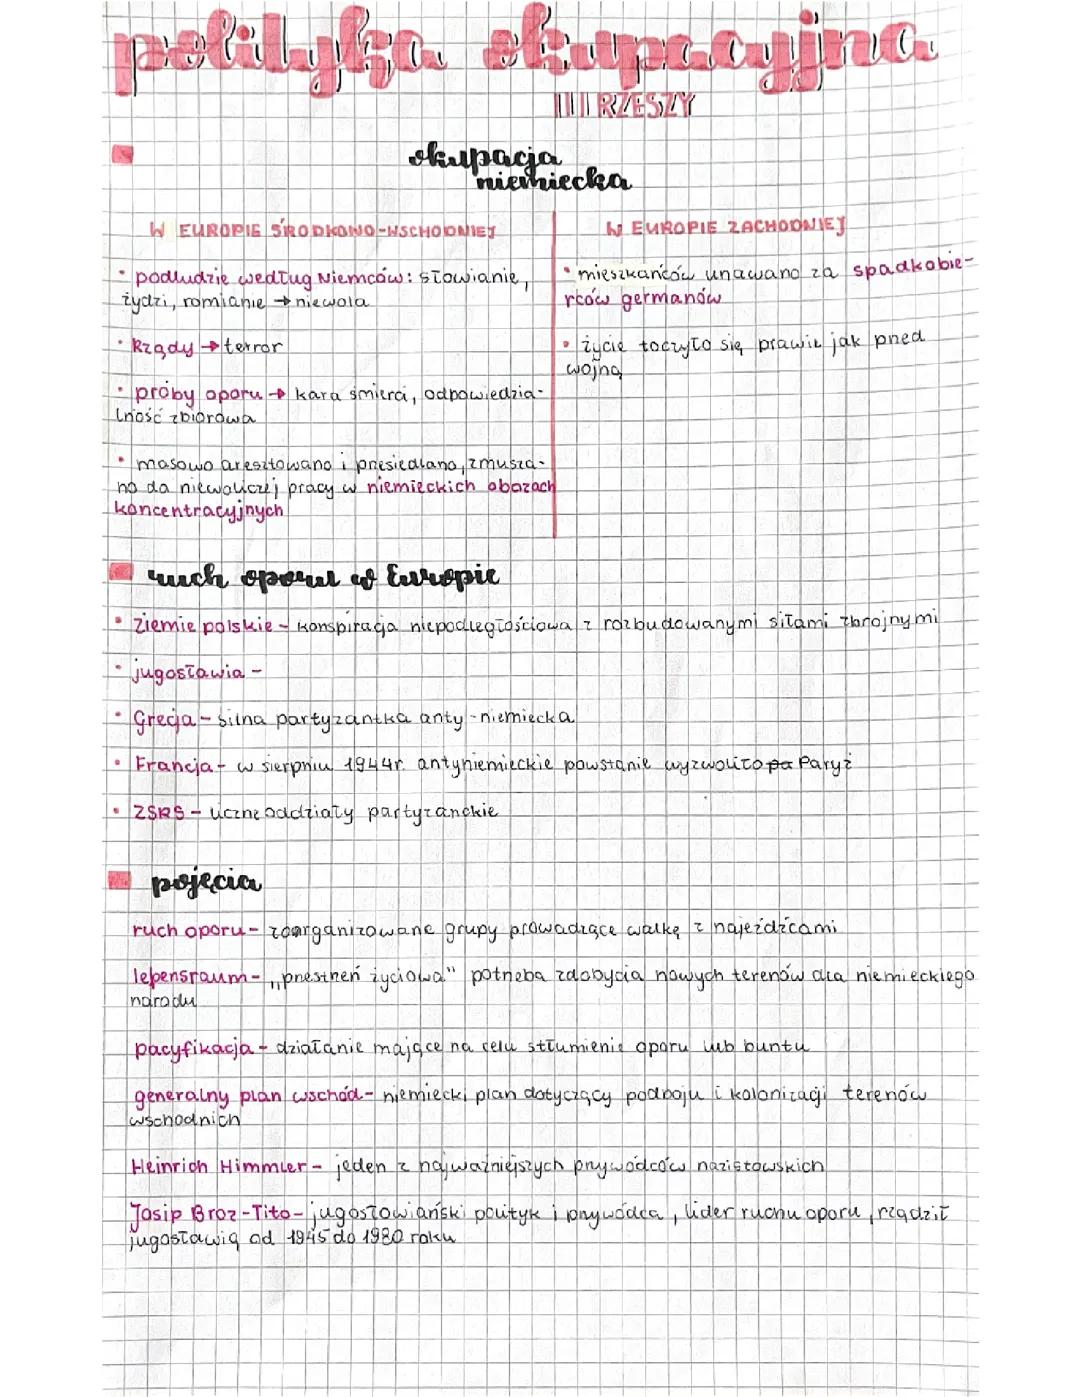 polityka okupacyjna
III RZESZY
okupacja
niemiecka
W EUROPIE ŚRODKOWO-WSCHODNIEJ
• podludzie według Niemców: słowianie,
żydzi, romianie → niewola
• Rządy → terror
• próby oporu → kara śmierci, odpowiedzia-
lność zbiorowa
• masowo aresztowano i przesiedlano, zmusza-
no do niewolniczej pracy w niemieckich obozach
koncentracyjnych
W EUROPIE ZACHODNIEJ
• mieszkańców uznawano za spadkobie-
rców germanów
• życie toczyło się prawie jak przed
wojną
ruch oporu w Europie
• Ziemie polskie - konspiracja niepodległościowa z rozbudowanymi siłami zbrojnymi
• jugosławia -
• Grecja - silna partyzantka anty-niemiecka
• Francja - w sierpniu 1944r. antyniemieckie powstanie wyzwoliło pa Paryż
• ZSRS - liczne oddziały partyzanckie
pojęcia
ruch oporu - zoorganizowane grupy prowadzące walkę z najeźdźcami
lebensraum - „przestrzeń życiowa" potrzeba zdobycia nowych terenów dla niemieckiego
narodu
pacyfikacja - działanie mające na celu stłumienie oporu lub buntu
generalny plan wschód - niemiecki plan dotyczący podboju i kolonizacji terenów
wschodnich
Heinrich Himmler - jeden z najważniejszych przywódców nazistowskich
Josip Broz-Tito - jugosłowiański polityk i przywódca, lider ruchu oporu, rządził
jugosławią od 1945 do 1980 roku